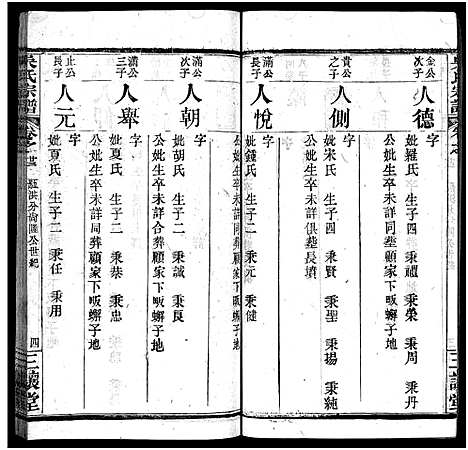 金公次子
人德
字
妣羅氏 生子四 秉禮 秉榮 秉周 秉丹
公妣生卒未詳同塟顧家下畈蠏子地
貴公之子
人側
字
妣宋氏 生子四 秉賢 秉聖 秉揚 秉純
人悅
字
妣鍾氏 生子二 秉元 秉健
公妣生卒未詳俱塟長墳
滿公次子
人朝
字
妣胡氏 生子二 秉誠 秉良
公妣生卒未詳合葬顧家下畈蠏子地
滿公三子
人舉
字
妣夏氏 生子二 秉恭 秉忠
公妣生卒未詳同葬顧家下畈蠏子地
止公長子
人元
字
妣夏氏 生子二 秉任 秉用
吳氏宗譜
卷之
公世紀
四
三讓堂